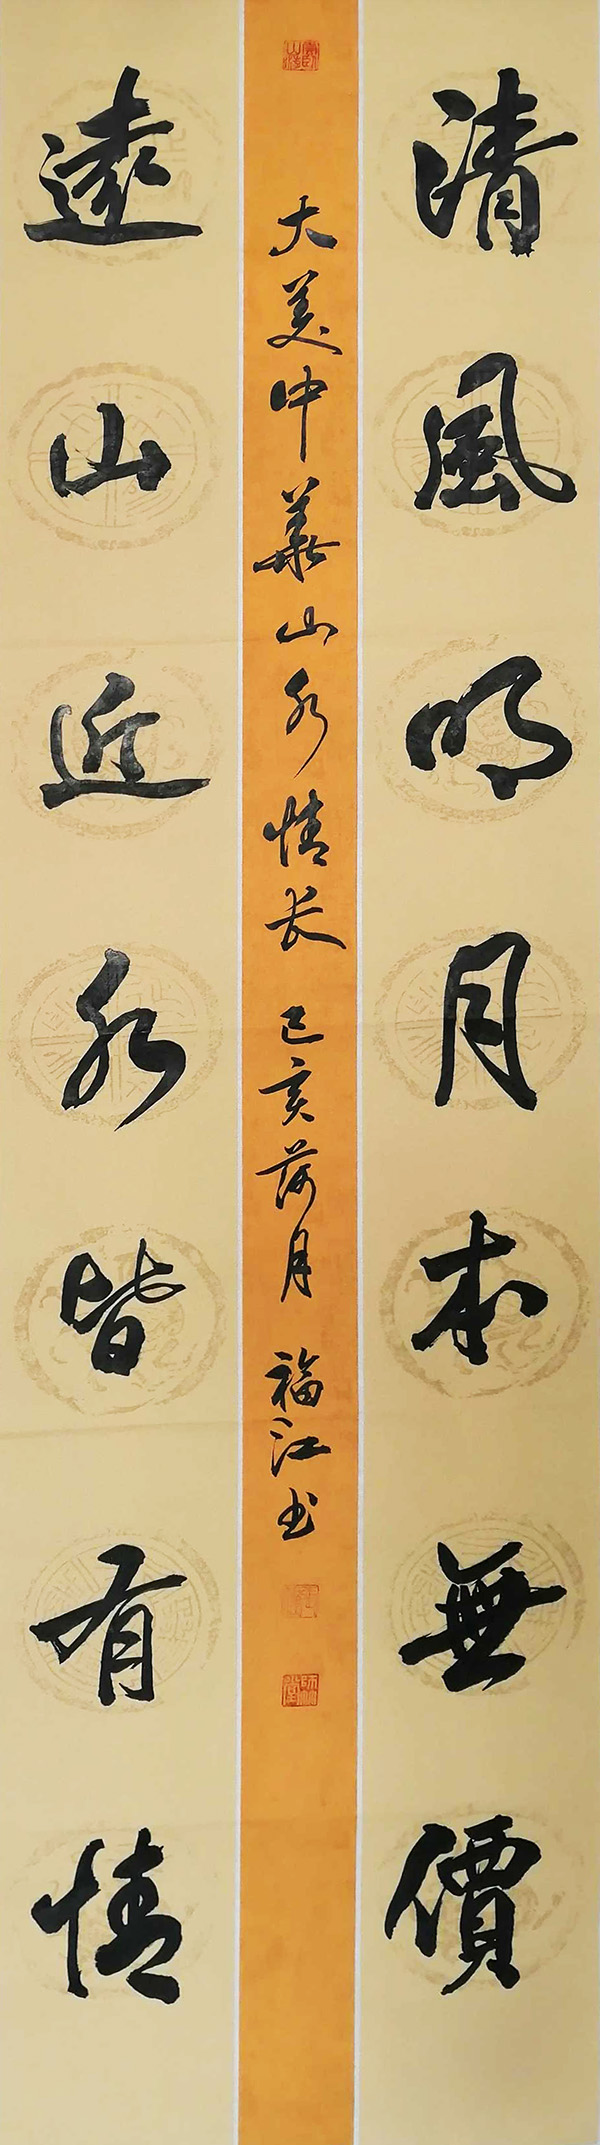 清風明月本無價
大美中華山水情长 己亥荷月 福江书
遠山近水皆有情